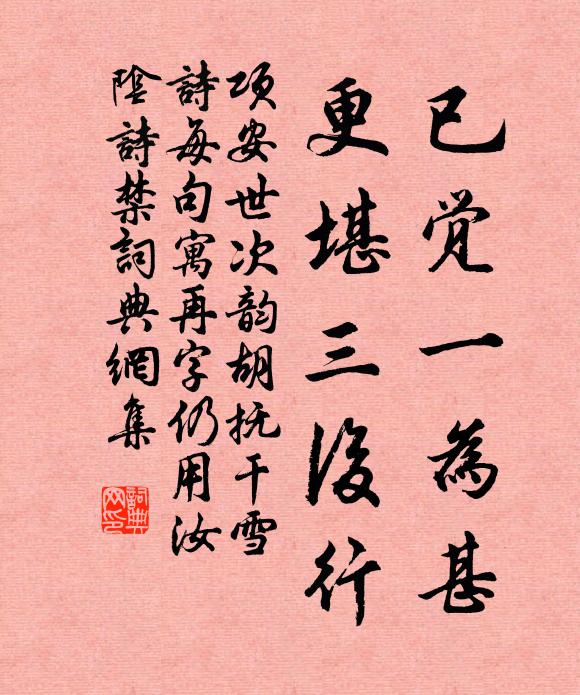 已觉一為甚
更堪三復行
项安世次韵胡抚干雪
詩每句寓再字仍用汝
陰詩禁詞典網集
詞典网印